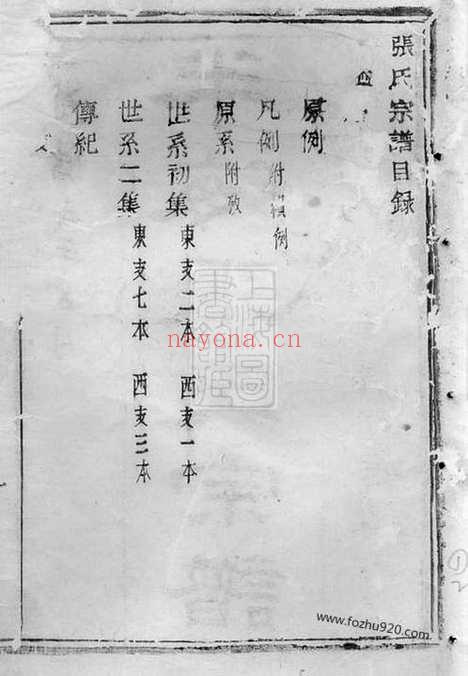 張氏宗譜目錄
原例
凡例 附續例
原系 附攷
世系初集 東支二本 西支一本
世系二集 東支七本 西支三本
傳紀
上海圖書館藏
nayona.cn
www.fozhu920.com